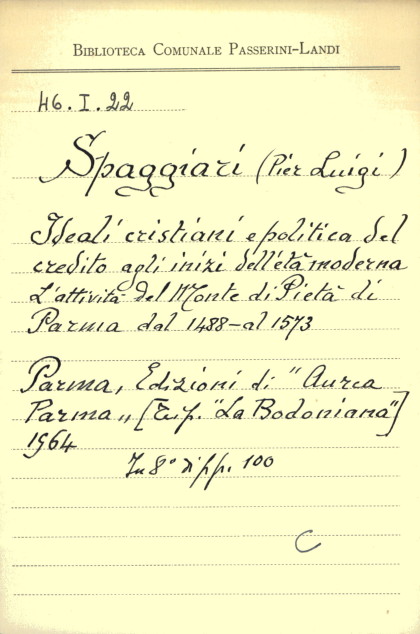 BIBLIOTECA COMUNALE PASSERINI-LANDI
46.I.22
Spaggiari (Pier Luigi)
Ideali cristiani e politica del
credito agli inizi dell'età moderna
L'attività del Monte di Pietà di
Parma dal 1488-al 1573
Parma, Edizioni di "Aurea
Parma„ [Tip. "La Bodoniana"]
1964
In 8° di pp. 100
C